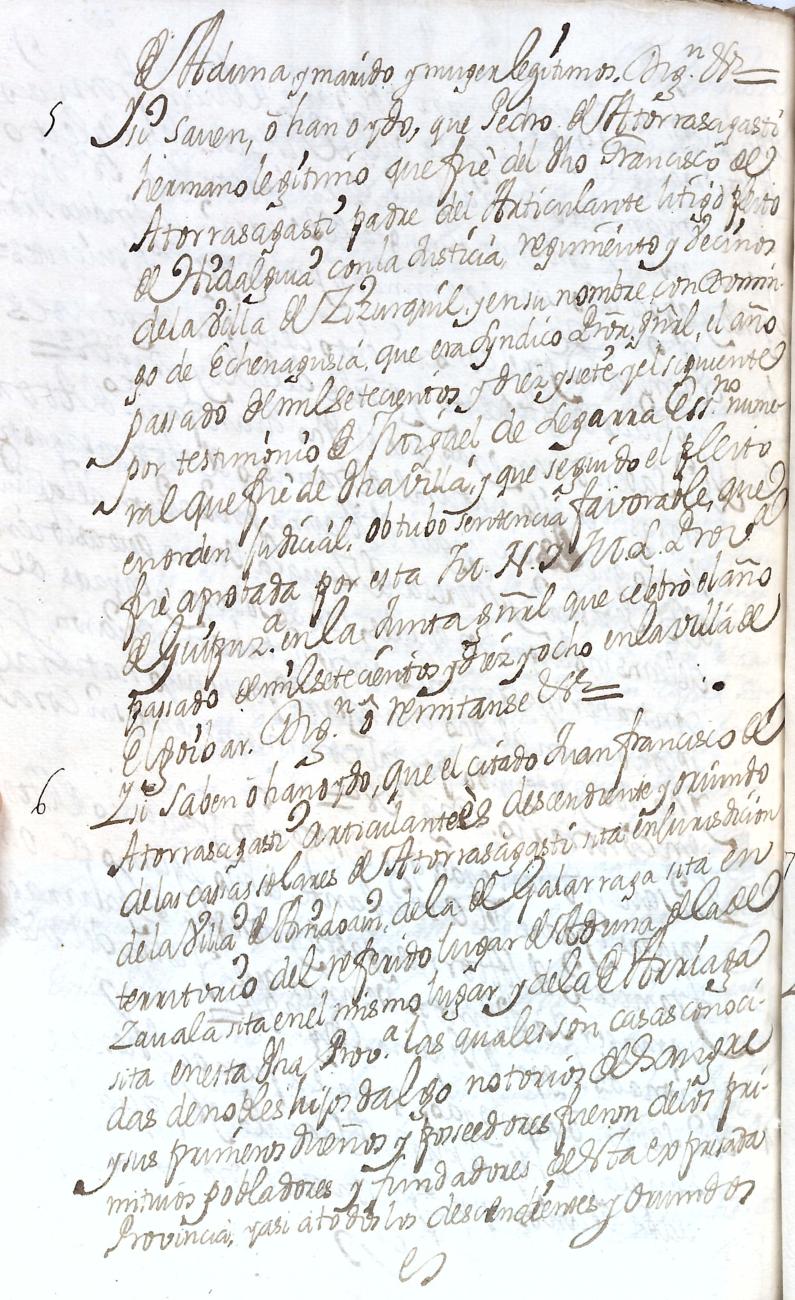 de Aduna y marido y muger legitimos. Dig.n &a =
5 Y si saven, ò han oydo, que Pedro de Atorrasagasti
hermano legitimo que fuè del dho Francisco de
Atorrasagasti padre del Articulante litigò pleito
de Hidalguia con la Justicia, regimiento y Vecinos
de la Villa de Zizurquil, y en su nombre con Domin-
go de Echenagusia, que era Syndico Pror. gñral, el año
passado de mil setecientos y diez y siete y el siguiente
por testimonio de Miguel de Legarra Ess.no nume-
ral que fuè de dha villa, y que seguido el pleito
en orden judicial, obtubo sentencia favorable, que
fuè aprobada por esta M. N. y M. L. Prov.a
de Guipuz.a en la Junta gñral que celebrò el año
passado de mil setecientos y diez y ocho en la villa de
Elgoibar. Dig.n ò remitanse &a =
6 Y si saben ò han oydo, que el citado Juan francisco de
Atorrasagasti articulante ès descendiente y oriundo
de las casas solares de Atorrasagasti sita en Jurisdicion
de la Villa de Andoain, de la de Galarraga sita en
territorio del referido lugar de Aduna, de la de
Zavala sita en el mismo lugar y de la de Arriaga
sita en esta dha Prov.a las quales son casas conoci-
das de nobles hijos dalgo notorios de Sangre
y sus primeros dueños y posseedores fueron de los pri-
mitivos pobladores y fundadores de esta expresada
Provincia, y asi a todos los descendientes y oriundos
es